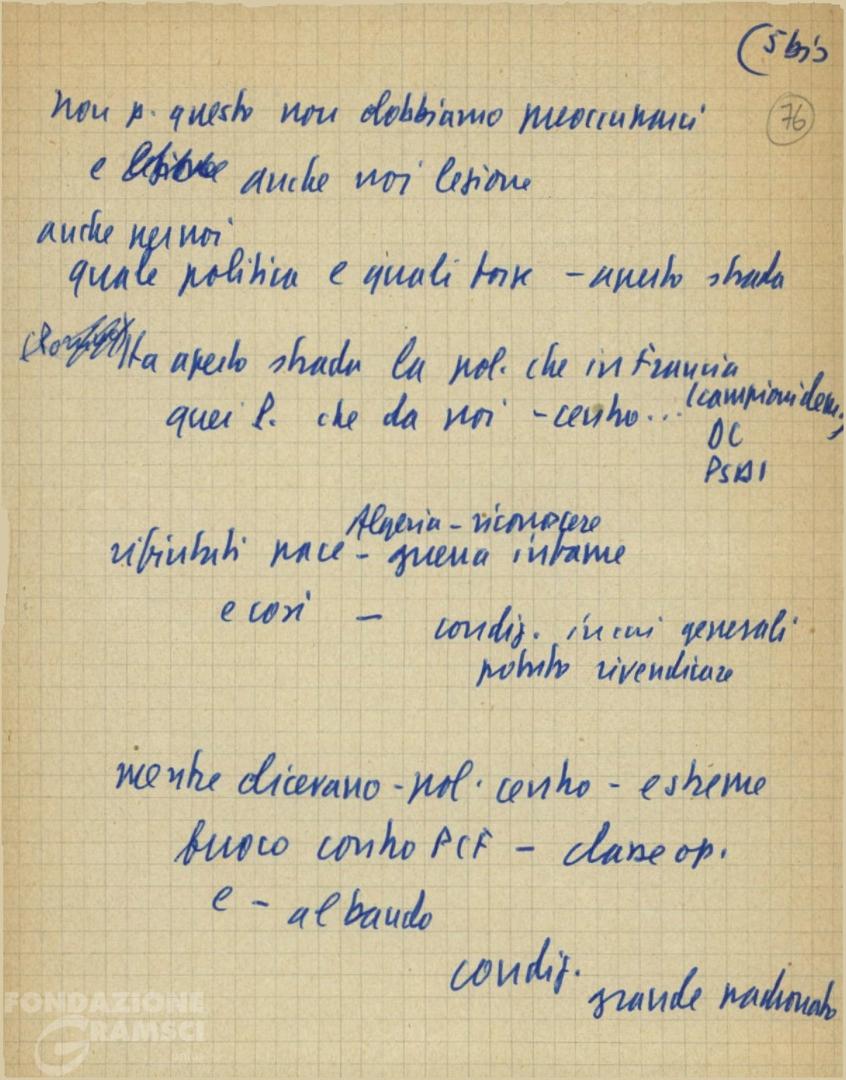 (5 bis
76
non p. questo non dobbiamo preoccuparci
e lezione anche noi lezione
anche per noi
quale politica e quali forze - aperto strada
Ha aperto strada la pol. che in Francia
quei P. che da noi - centro... (campioni dem.,
DC
PSDI
Algeria - riconoscere
rifiutati pace - guerra infame
e così - condiz. in cui generali
potuto rivendicare
mentre dicevano - pol. centro - estreme
fuoco contro PCF - classe op.
e - al bando
condiz. grande padronato
FONDAZIONE
GRAMSCI